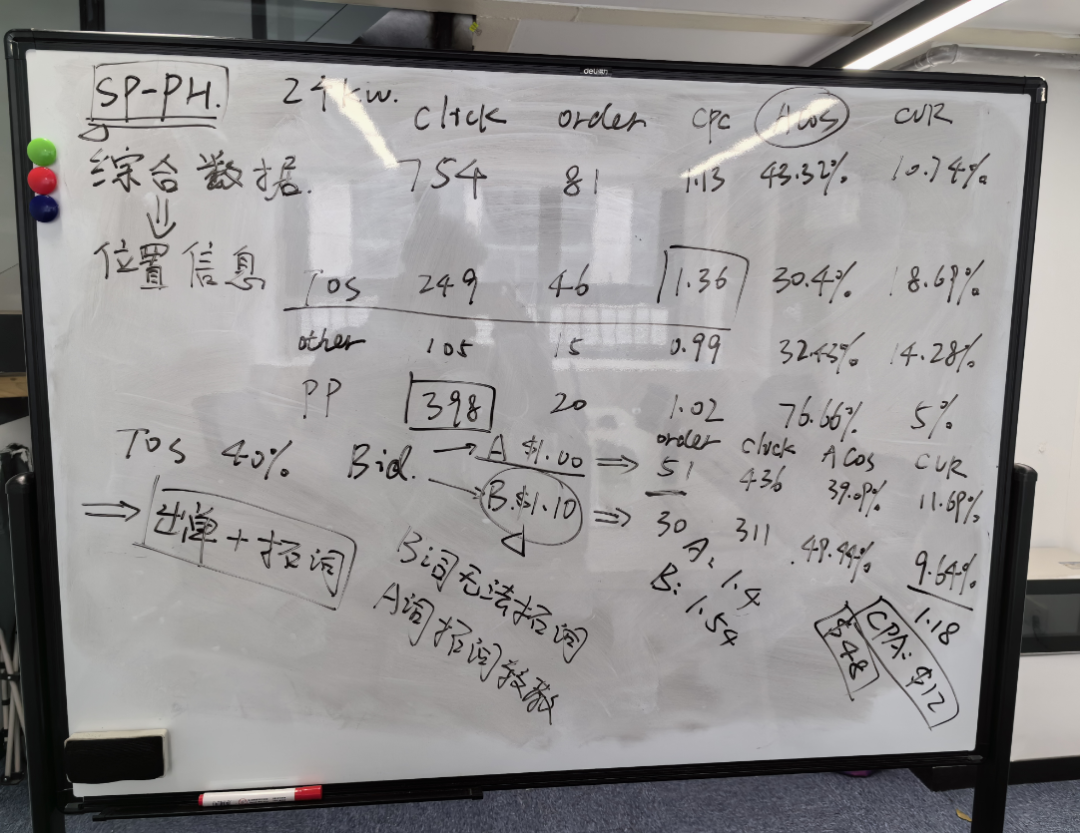 deli
SP-PH. 2个kw. Click order cpc Acos CVR
综合数据. 754 81 1.13 43.32% 10.74%
位置信息
TOS 249 46 1.36 30.4% 18.69%
other 105 15 0.99 32.43% 14.28%
PP 398 20 1.02 76.66% 5%
order Click ACos CVR
TOS 40% Bid. A $1.00 51 436 39.09% 11.69%
B.$1.10 30 311 49.44% 9.64%
出单+拓词
A: 1.4
B: 1.54
B词无法拓词
A词拓词较散
1.18
CPA: $12
$48